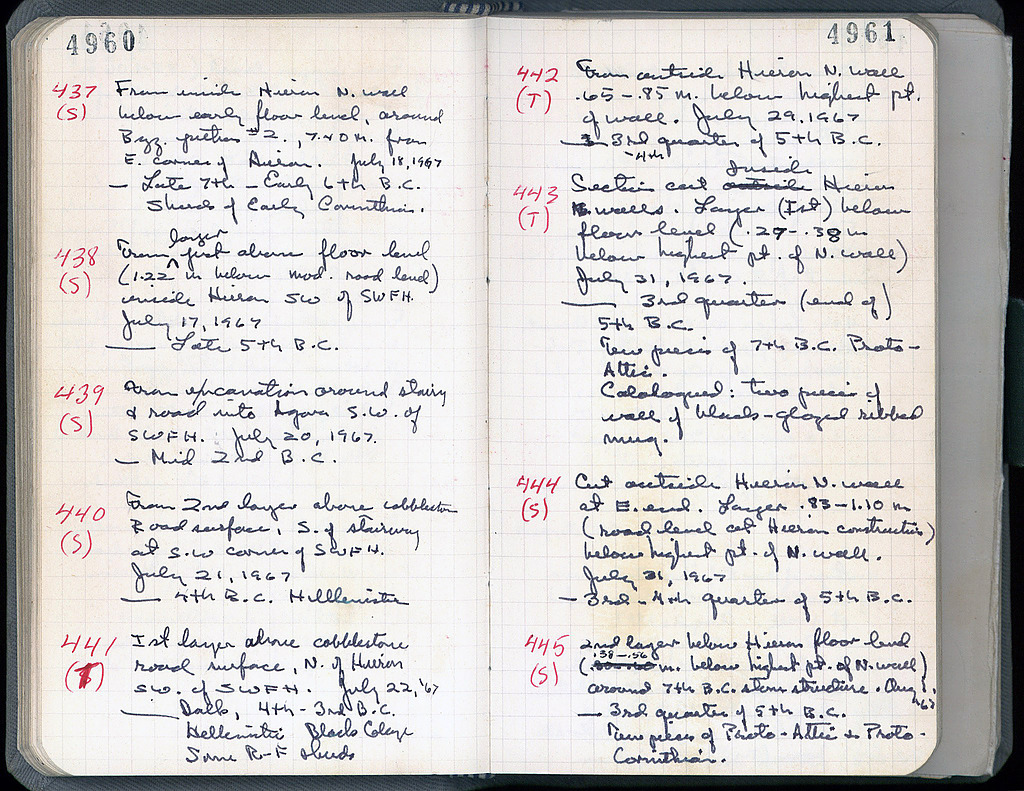 4960
437
(S)
From inside Hieron N. wall
below early floor level, around
Byz. pithos #2., 7.20 m. from
E. corner of Hieron. July 18, 1967
— Late 7th – Early 6th B.C.
Sherds of Early Corinthian.
438
(S)
From layer just above floor level
(1.22 m below mod. road level)
inside Hieron SW of SWFH.
July 17, 1967
— Late 5th B.C.
439
(S)
From excavation around stairy
& road into Agora S.W. of
SWFH. July 20, 1967.
— Mid 2nd B.C.
440
(S)
From 2nd layer above cobblestone
Road surface, S. of stairway
at S.W corner of SWFH.
July 21, 1967
— 4th B.C. Helllenistic
441
(T)
Ist layer above cobblestone
road surface, N. of Hieron
SW. of SWFH. July 22, '67
— 4th - 3rd B.C.
Hellenistic Black Glaze
Some R-F sherds
4961
442
(T)
From outside Hieron N. wall
.65 – .85 m. below highest pt.
of wall. July 29, 1967
— 3rd quarter of 5th B.C.
-4th
443
(T)
Inside
Section cut outside Hieron
walls. Layer (Ist) below
floor level (.27 - .38 m
below highest pt. of N. wall)
July 31, 1967.
— 3rd quarter (end of)
5th B.C.
Few pieces of 7th B.C. Proto-
Attic.
Catalogued: two pieces of
wall of black-glazed ribbed
mug.
444
(S)
Cut outside Hieron N. wall
at E. end. Layer .83 – 1.10 m
(road level at Hieron construction)
below highest pt. of N. wall.
July 31, 1967
— 3rd - 4th quarter of 5th B.C.
445
(S)
2nd layer below Hieron floor level
(.38 – .56 m. below highest pt. of N. wall)
around 7th B.C. stone structure. Aug 1, '67
— 3rd quarter of 5th B.C.
Few pieces of Proto-Attic & Proto-
Corinthian.